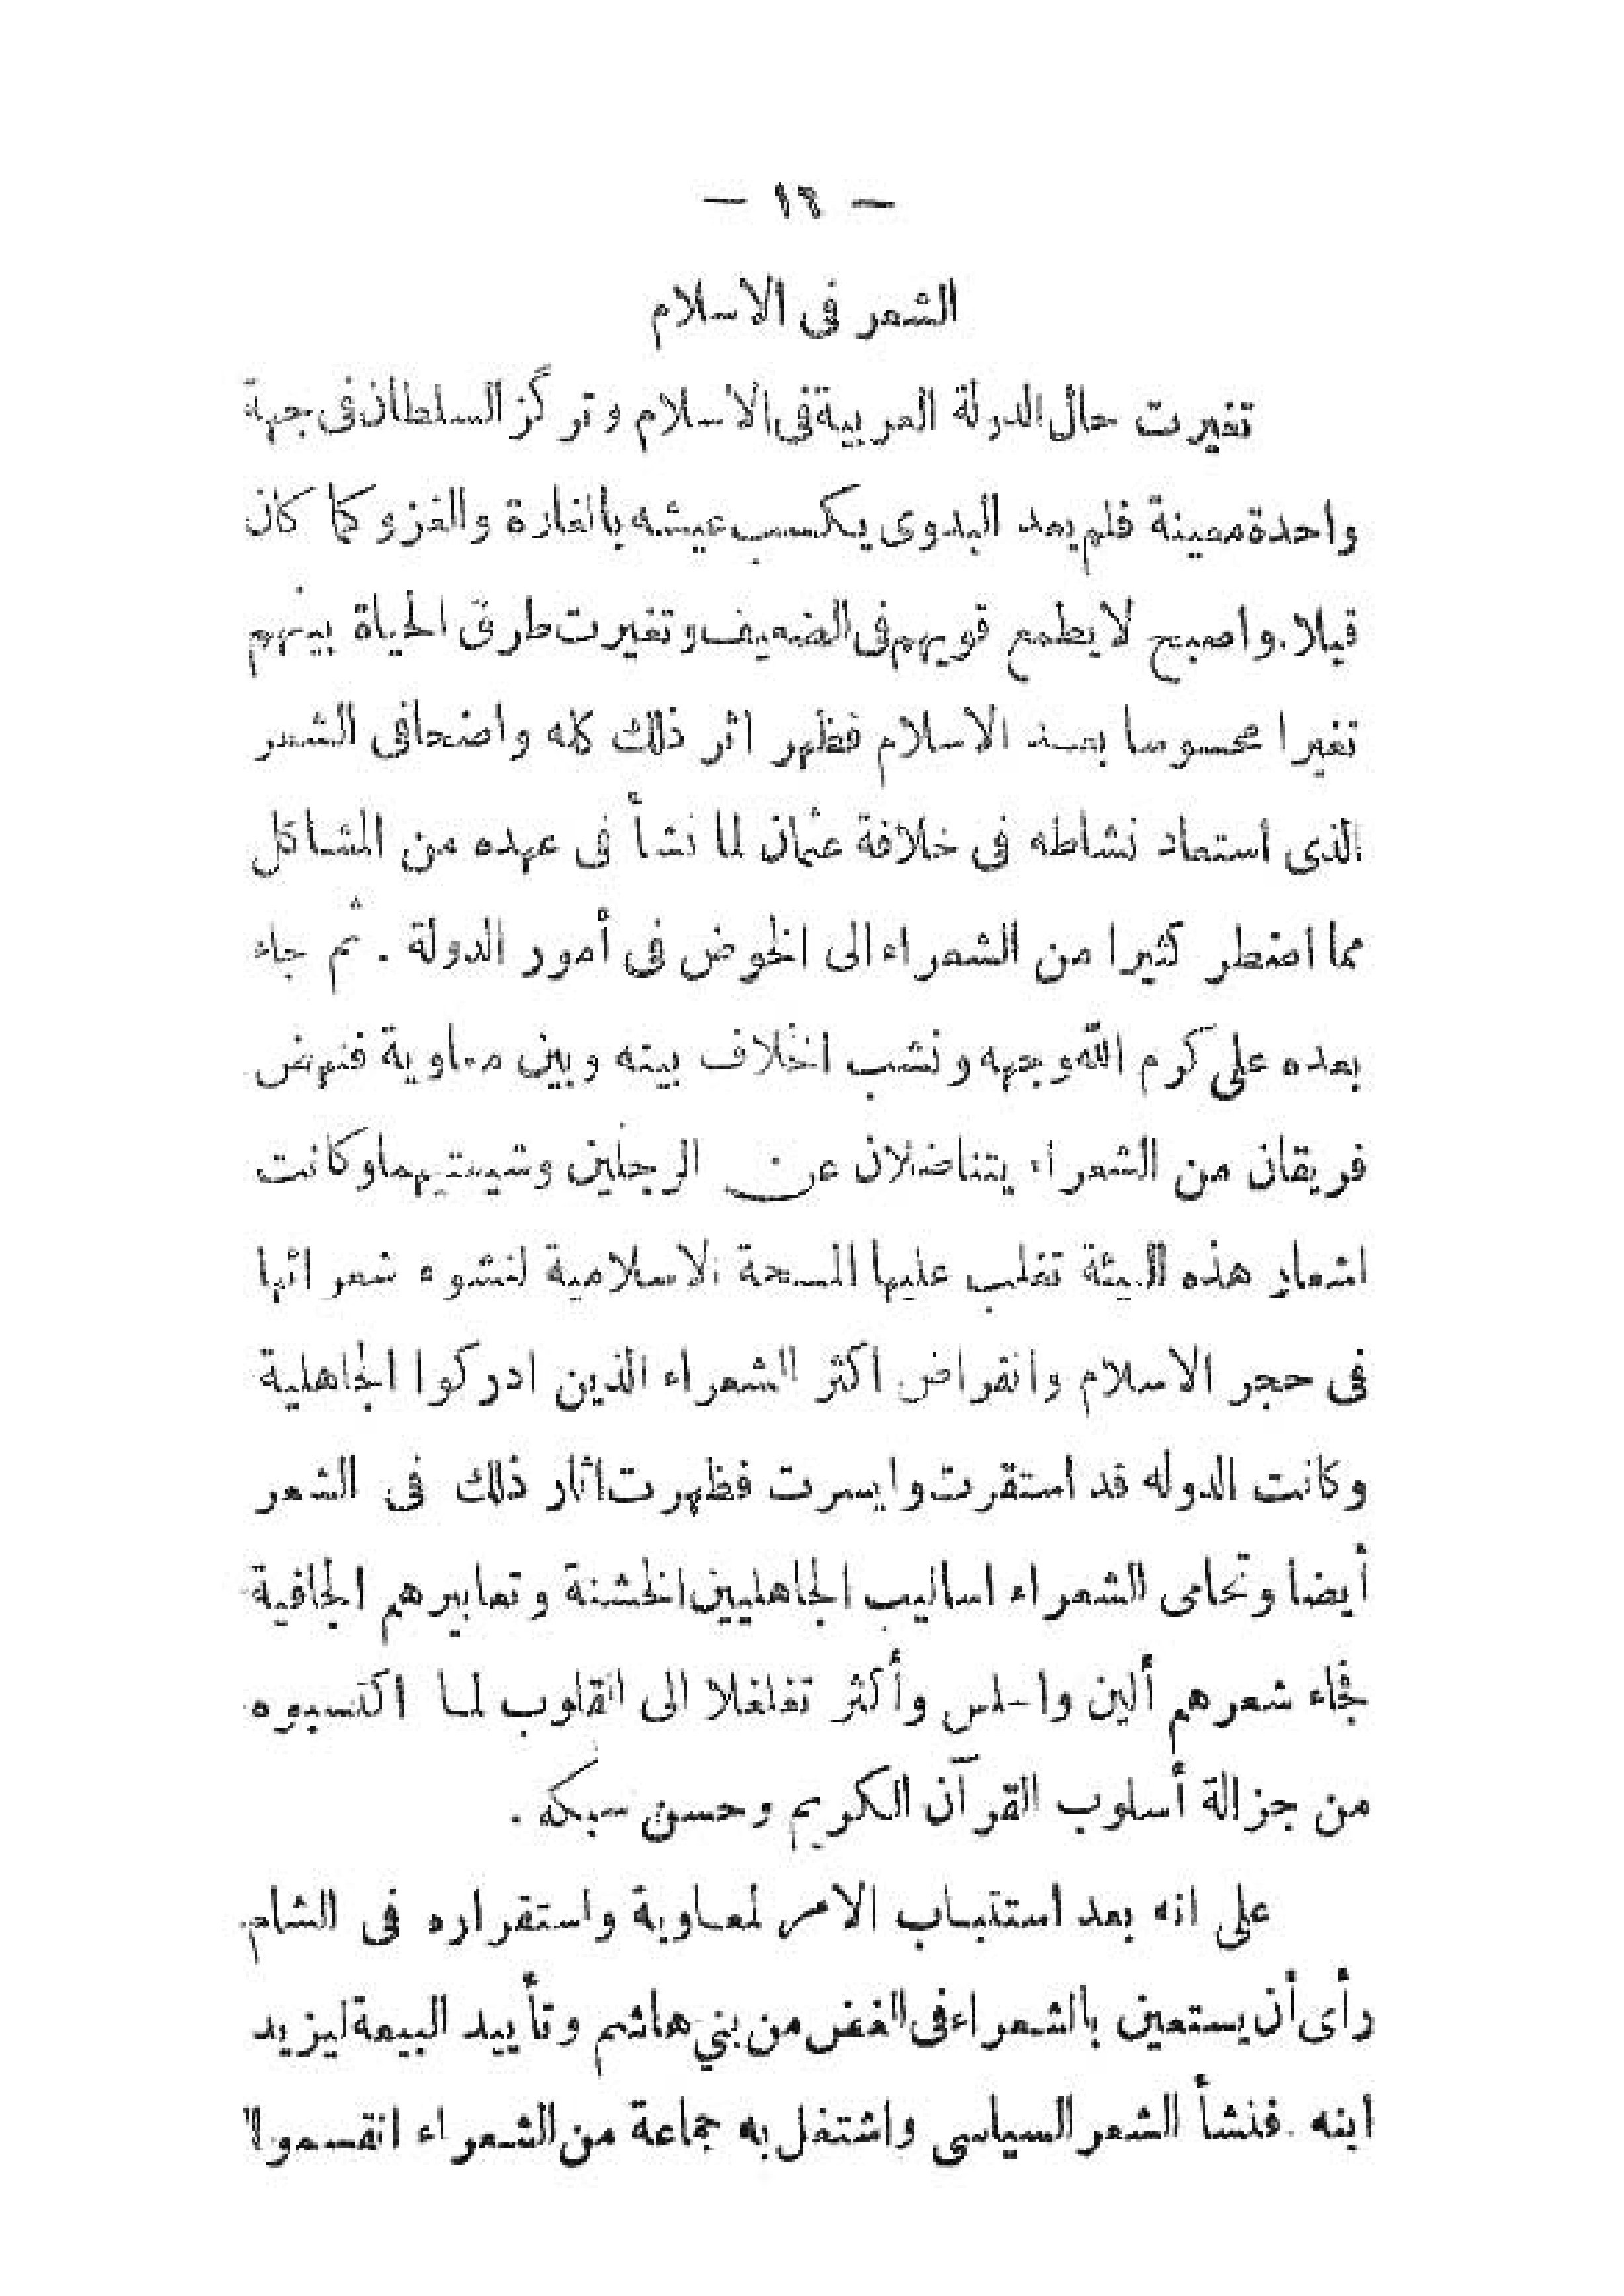 — ١٦ —
الشعر فى الاسلام
تغيرت حال الدولة العربية فى الاسلام وتركز السلطان فى جهة
واحدة معينة فلم يعد البدوى يكسب عيشه بالغارة والغزو كما كان
قبلا . واصبح لا يطمع قويهم فى الضعيف وتغيرت طرق الحياة بينهم
تغيرا محسوسا بعد الاسلام فظهر اثر ذلك كله واضحا فى الشعر
الذى استعاد نشاطه فى خلافة عثمان لما نشأ فى عهده من المشاكل
مما اضطر كثيرا من الشعراء الى الخوض فى أمور الدولة . ثم جاء
بعده على كرم الله وجهه ونشب الخلاف بينه وبين معاوية فنهض
فريقان من الشعراء يتناضلان عن الرجلين وشيعتيهما وكانت
اشعار هذه البيئة تغلب عليها المسحة الاسلامية لنشوء شعرائها
فى حجر الاسلام وانقراض اكثر الشعراء الذين ادركوا الجاهلية
وكانت الدوله قد استقرت وايسرت فظهرت اثار ذلك فى الشعر
أيضا وتحامى الشعراء اساليب الجاهليين الخشنة وتعابيرهم الجافية
فجاء شعرهم ألين واسلس وأكثر تغلغلا الى القلوب لما اكتسبوه
من جزالة أسلوب القرآن الكريم وحسن سبكه .
على انه بعد استتباب الامر لمعاوية واستقراره فى الشام
رأى أن يستعين بالشعراء فى الغض من بني هاشم وتأييد البيعة ليزيد
ابنه . فنشأ الشعر السياسى واشتغل به جماعة من الشعراء انقسموا